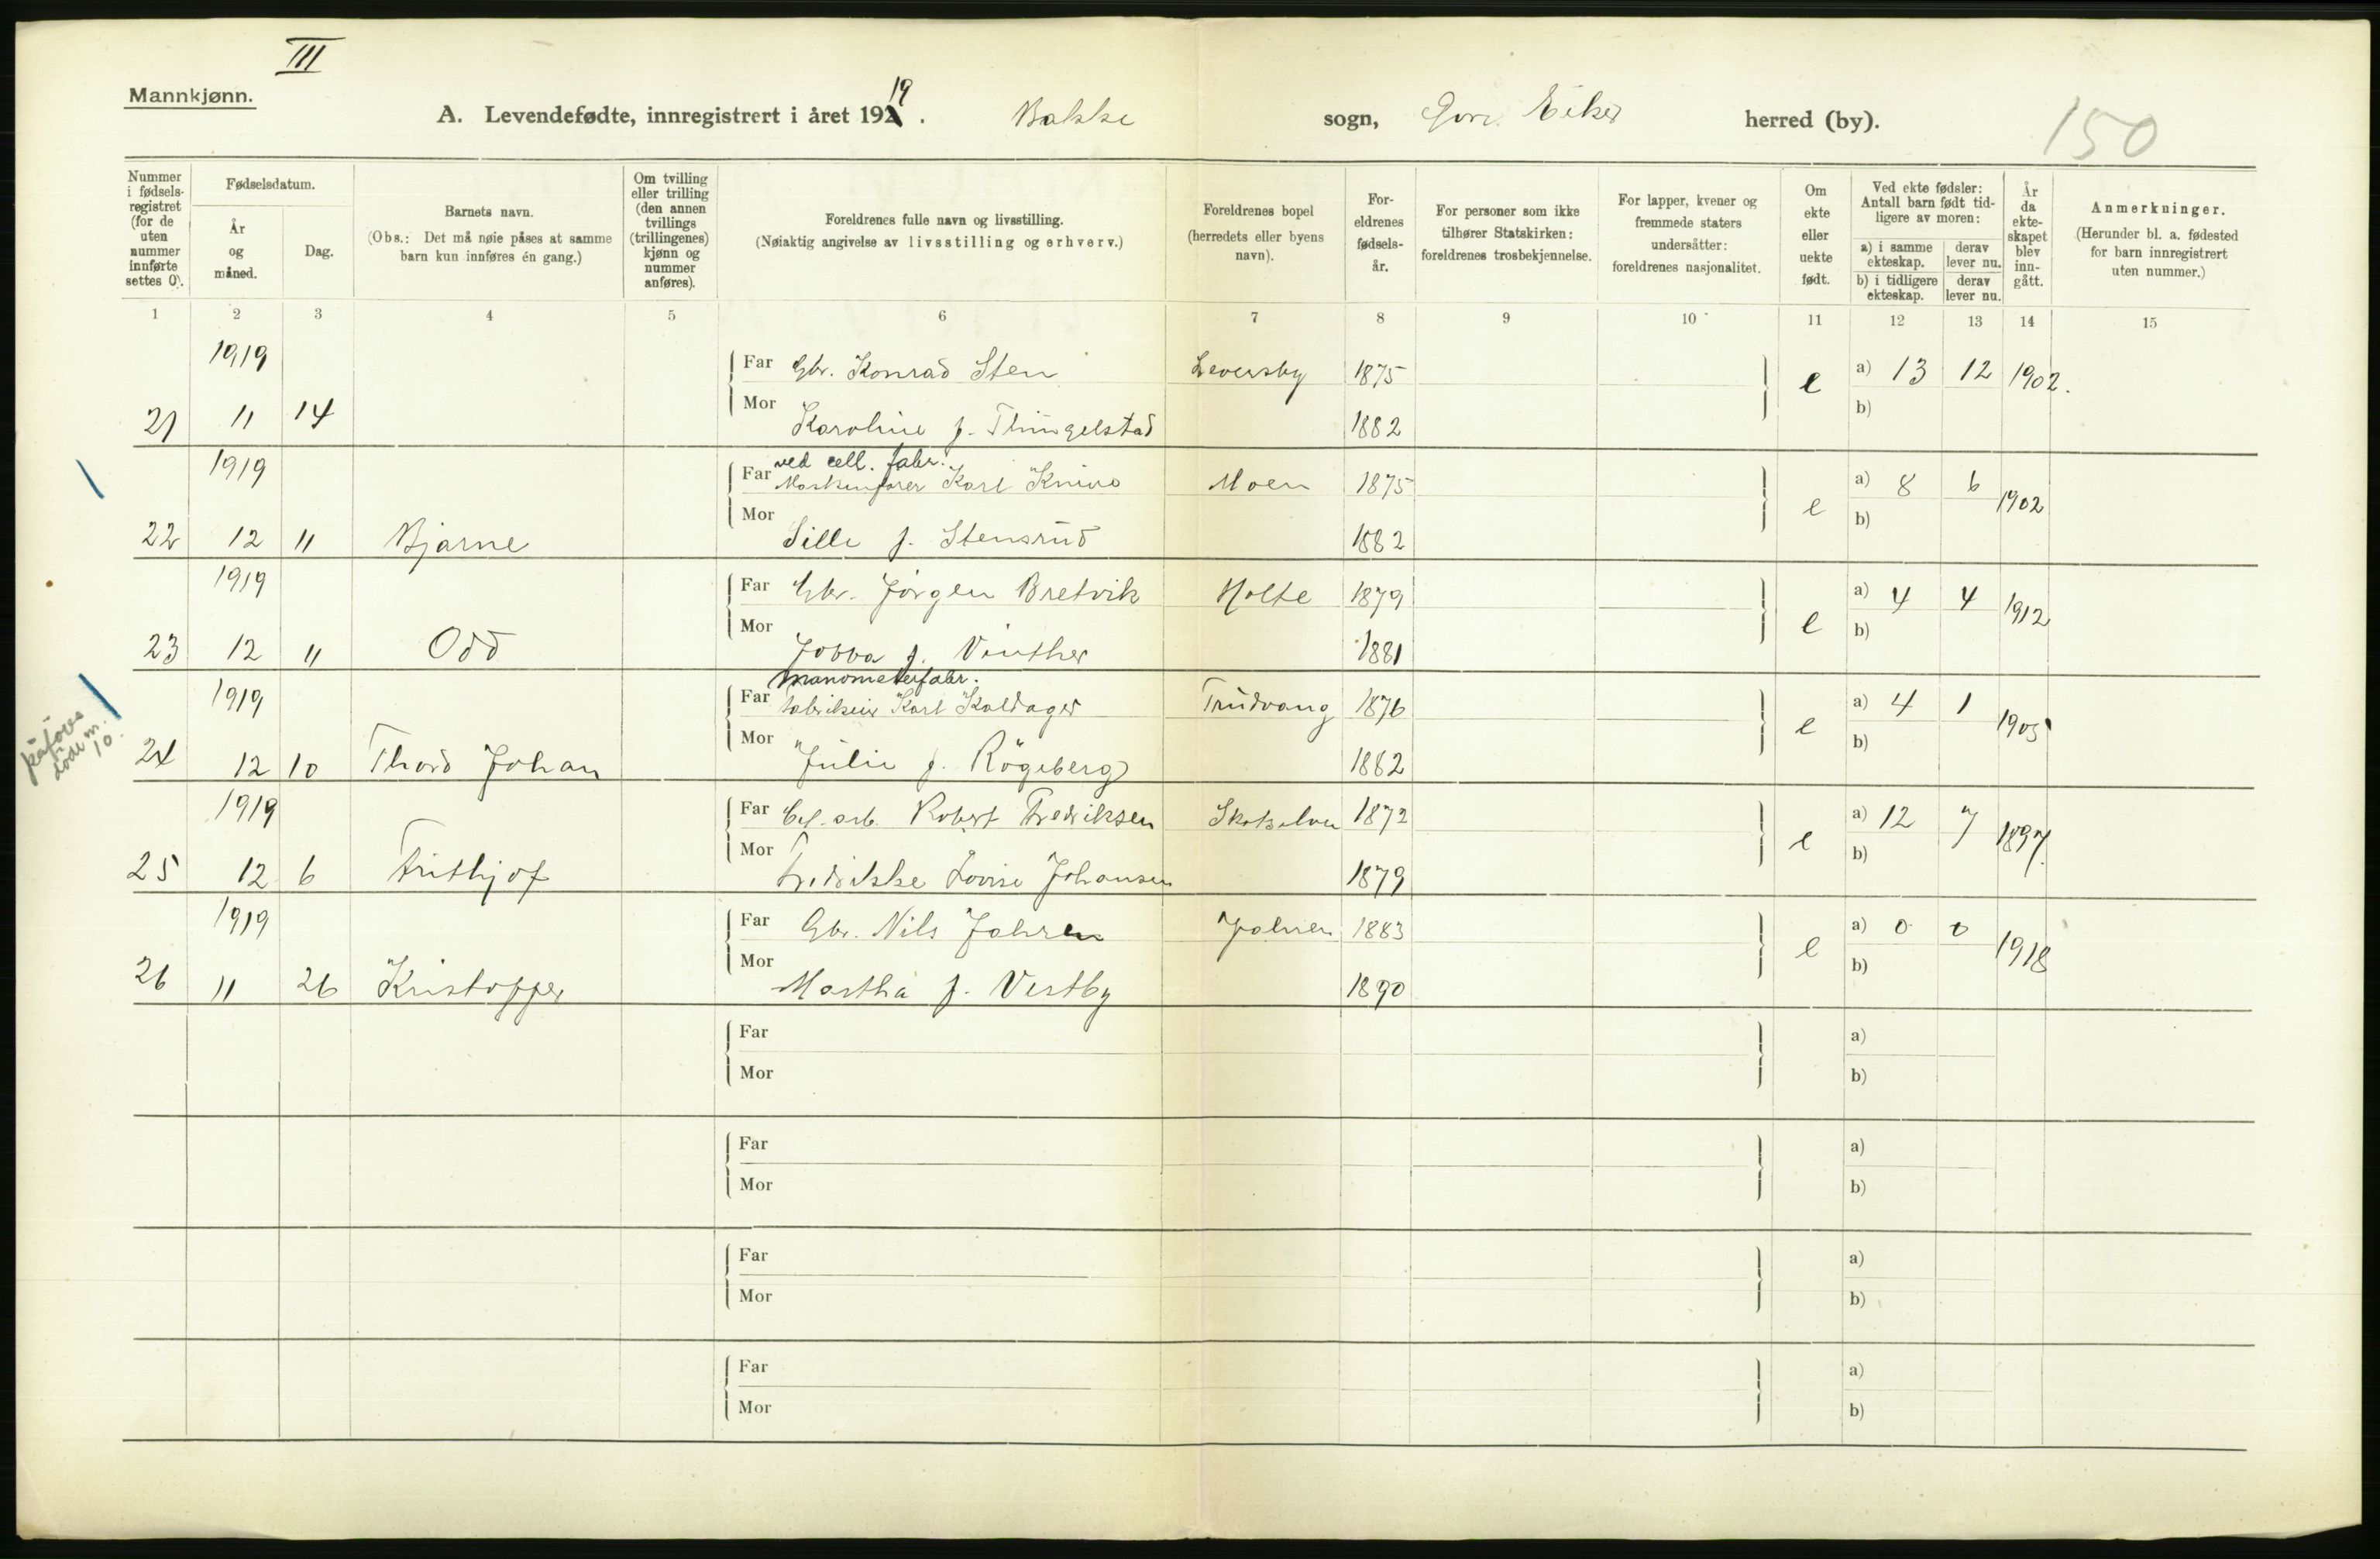 III
Mannkjønn.
A. Levendefødte, innregistrert i året 1919. Bakke sogn, Øvre Eiker herred (by). 150
Nummer i fødsels-registret (for de uten nummer innførte settes 0).
Fødselsdatum.
År og måned.
Dag.
Barnets navn.
(Obs.: Det må nøie påses at samme barn kun innføres én gang.)
Om tvilling eller trilling (den annen tvillings (trillingenes) kjønn og nummer anføres).
Foreldrenes fulle navn og livsstilling.
(Nøiaktig angivelse av livsstilling og erhverv.)
Foreldrenes bopel (herredets eller byens navn).
For-eldrenes fødsels-år.
For personer som ikke tilhører Statskirken: foreldrenes trosbekjennelse.
For lapper, kvener og fremmede staters undersåtter: foreldrenes nasjonalitet.
Om ekte eller uekte født.
Ved ekte fødsler: Antall barn født tid-ligere av moren:
a) i samme ekteskap. derav lever nu.
b) i tidligere ekteskap. derav lever nu.
År da ekte-skapet blev inn-gått.
Anmerkninger.
(Herunder bl. a. fødested for barn innregistrert uten nummer.)
1 2 3 4 5 6 7 8 9 10 11 12 13 14 15
1919 Far Gbr. Konrad Sten 1875 e a) 13 12 1902.
Mor b)
21 11 14 Karoline f. Thingelstad 1882
1919 ved cell. fabr.
Far Karl Moen 1875 e a) 8 6 1902
Mor b)
22 12 11 Bjarne f. Stensrud 1882
1919 Far Gbr. Jørgen Bretvik Holte 1879 e a) 4 4 1912
Mor b)
23 12 11 Odd f. Vinther 1881
1919 Manometerfabr.
Far Karl Kaldager Trudvang 1876 e a) 4 1 1905
Mor b)
24 12 10 Thord Johan Julie f. Rögeberg 1882
10.
1919 Far Cel. arb. Robert Fredriksen Skotselven 1872 e a) 12 7 1897.
Mor b)
25 12 6 Frithjof Fredrikke Lovise Johansen 1879
1919 Far Gbr. Nils Jahren Jahren 1883 e a) 0 0 1918
Mor b)
26 11 26 Kristoffer Martha f. Vestby 1890
Far a)
Mor b)
Far a)
Mor b)
Far a)
Mor b)
Far a)
Mor b)